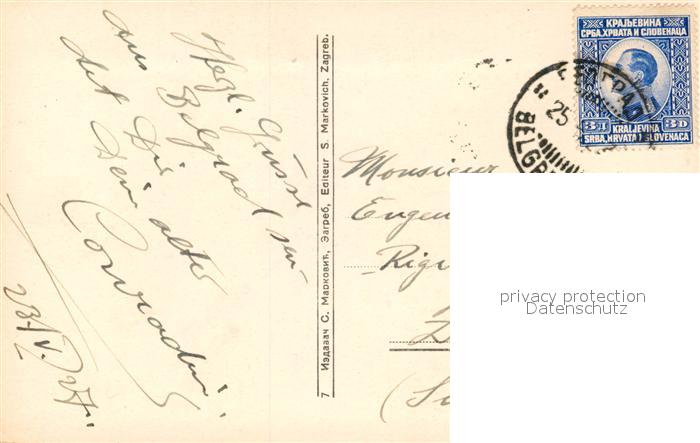 Herzl. Grüsse
aus Belgrad sen-
det Dir
Dein alter
Conradin.
23./V. 27.
7 Издавач С. Марковић, Загреб, Editeur S. Markovich, Zagreb.
КРАЉЕВИНА
СРБА, ХРВАТА И СЛОВЕНАЦА
3Д 3D
KRALJEVINA
SRBA, HRVATA I SLOVENACA
БЕОГРАД
25
BELGR
Monsieur
Eugen
Rigi
(Su
privacy protection
Datenschutz